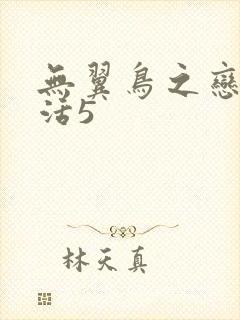 無翼鳥之戀
活5
林天真